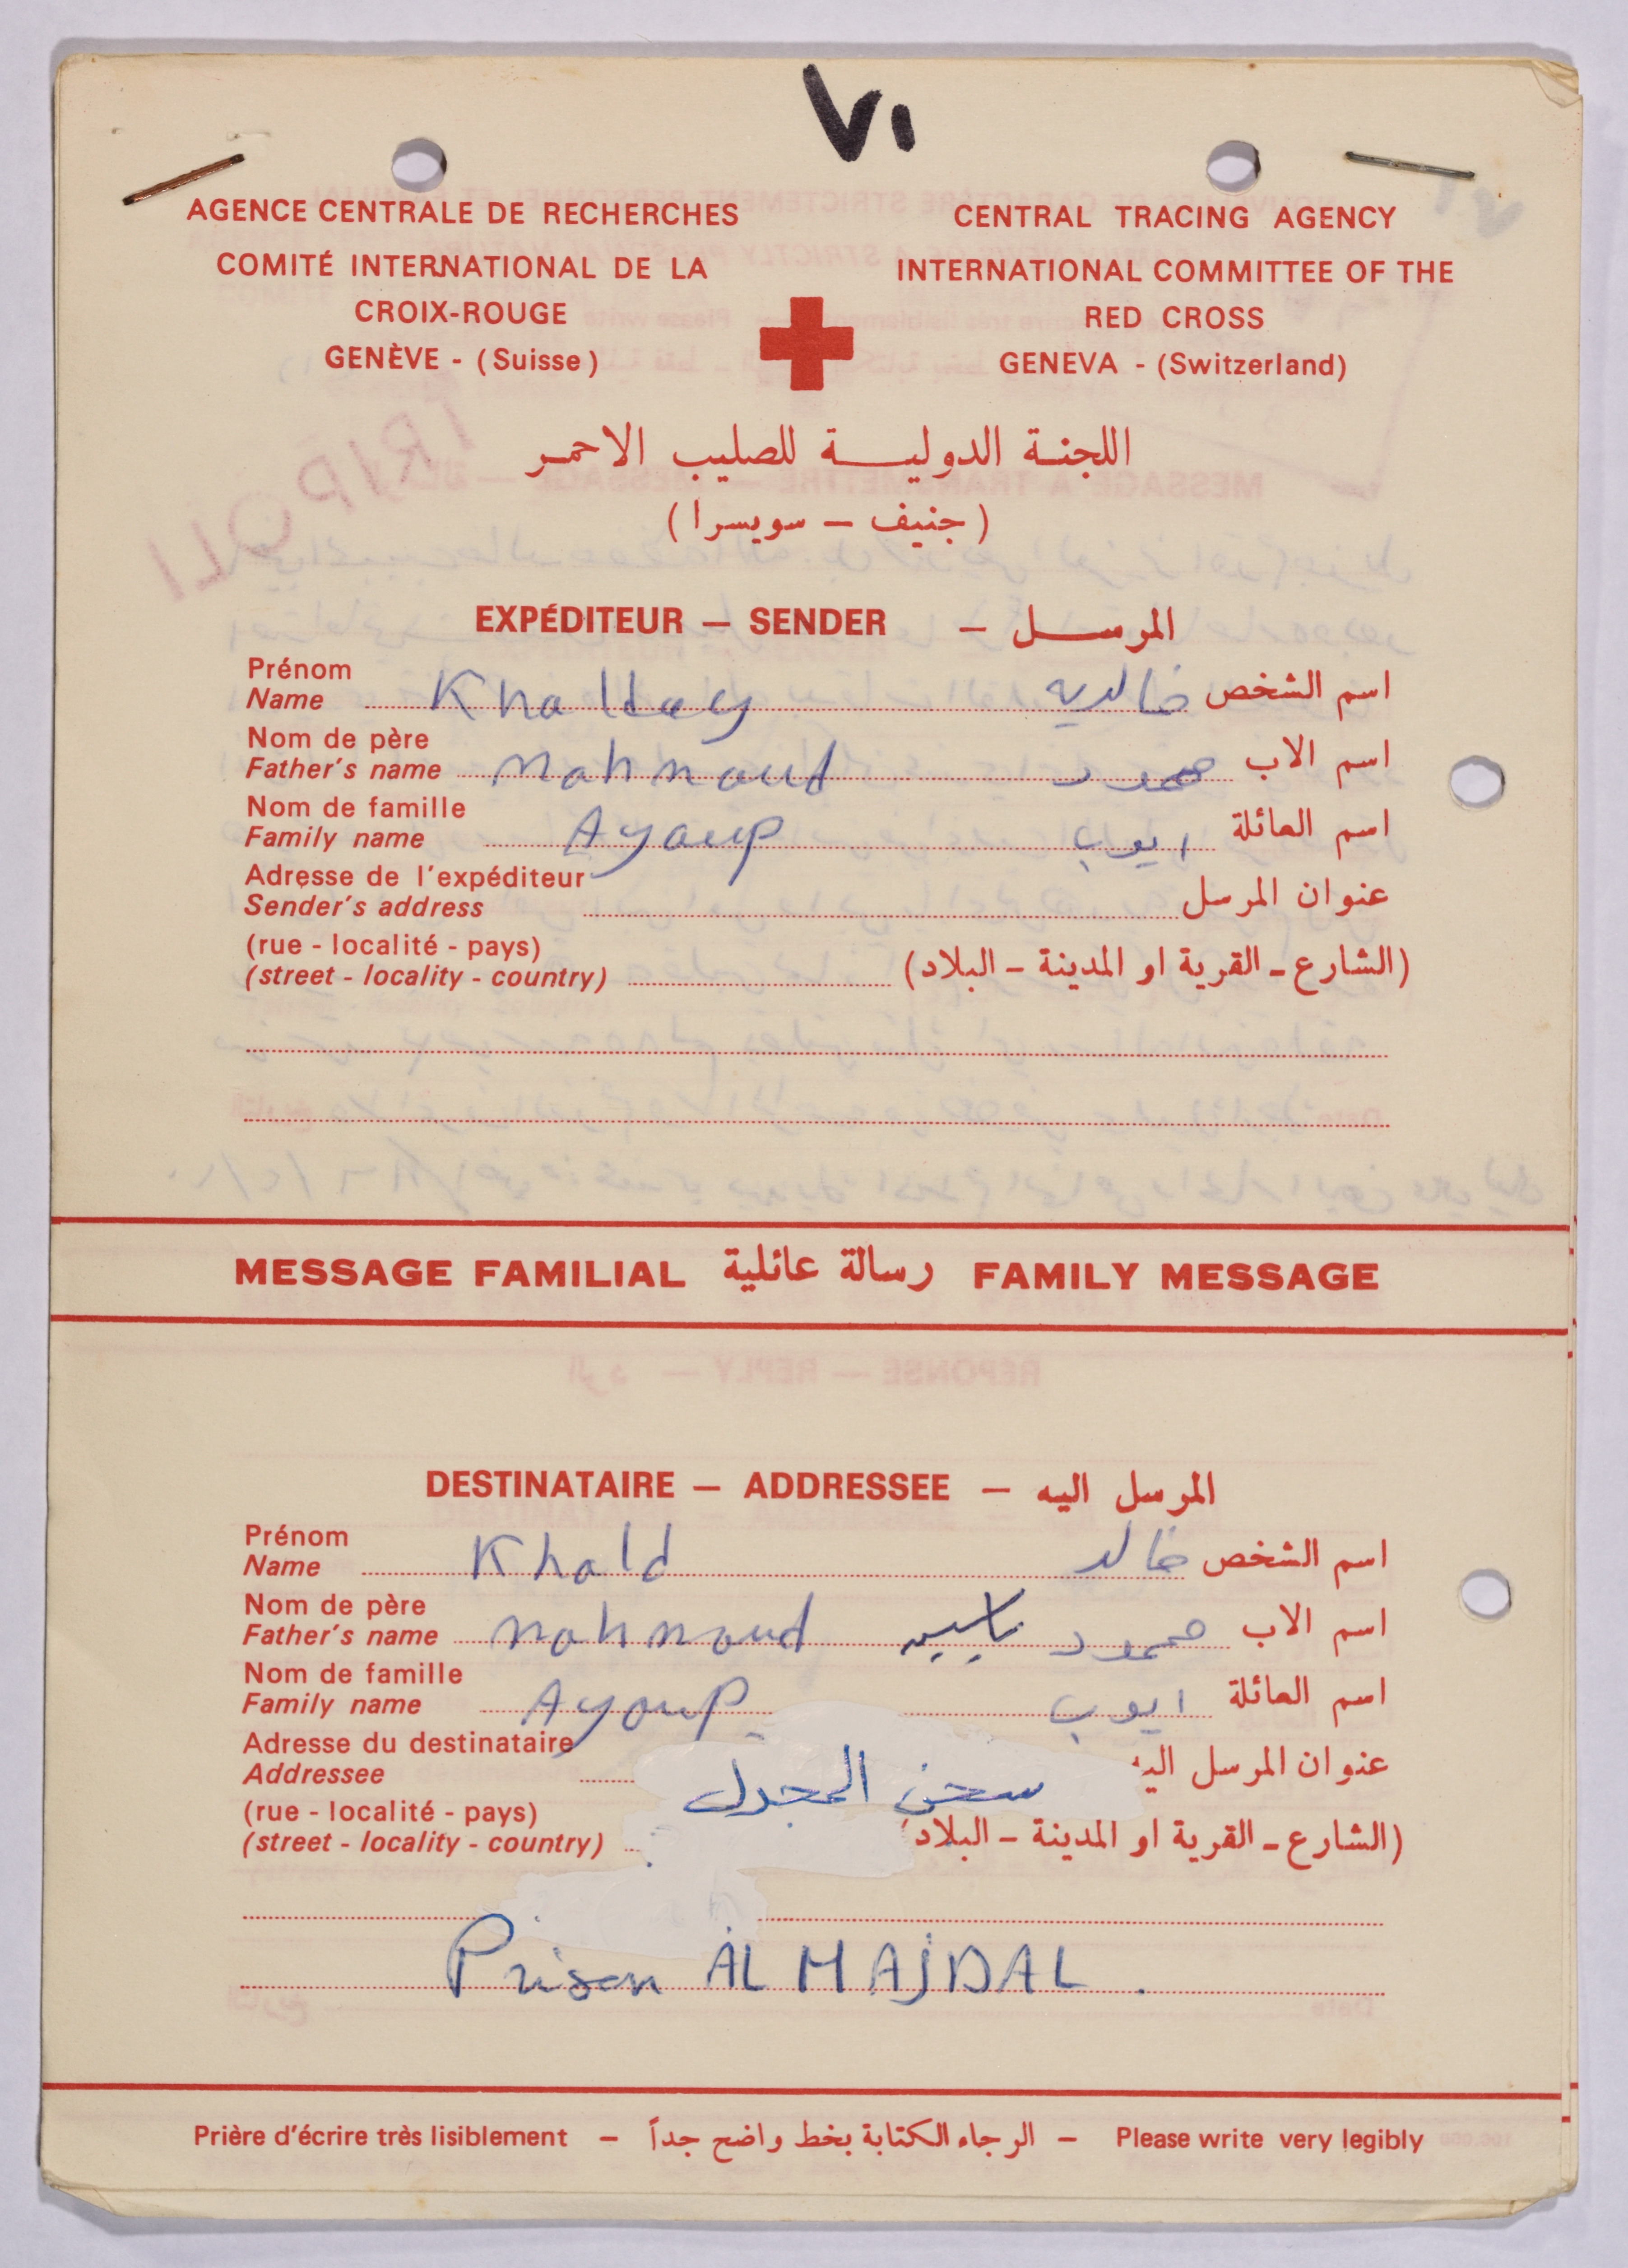 ٧١
AGENCE CENTRALE DE RECHERCHES
COMITÉ INTERNATIONAL DE LA
CROIX-ROUGE
GENÈVE - (Suisse)
CENTRAL TRACING AGENCY
INTERNATIONAL COMMITTEE OF THE
RED CROSS
GENEVA - (Switzerland)
اللجنة الدولية للصليب الاحمر
(جنيف – سويسرا)
EXPÉDITEUR — SENDER — المرسل
Prénom
Name Khalday خالديه اسم الشخص
Nom de père
Father's name Mahmoud محمود اسم الاب
Nom de famille
Family name Ayoup ايوب اسم العائلة
Adresse de l'expéditeur
Sender's address عنوان المرسل
(rue - localité - pays)
(street - locality - country) (الشارع - القرية او المدينة - البلاد)
MESSAGE FAMILIAL رسالة عائلية FAMILY MESSAGE
DESTINATAIRE — ADDRESSEE — المرسل اليه
Prénom
Name Khald خالد اسم الشخص
Nom de père
Father's name Mahmoud محمود ياسين اسم الاب
Nom de famille
Family name Ayoup ايوب اسم العائلة
Adresse du destinataire
Addressee سجن المجدل عنوان المرسل اليه
(rue - localité - pays)
(street - locality - country) (الشارع - القرية او المدينة - البلاد)
Prison AL MAJDAL.
Prière d'écrire très lisiblement – الرجاء الكتابة بخط واضح جداً – Please write very legibly